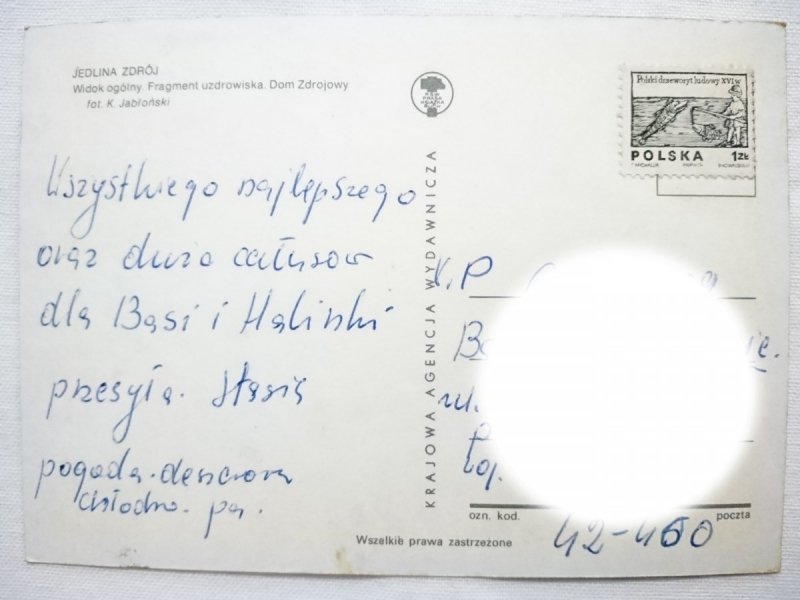 JEDLINA ZDRÓJ
Widok ogólny. Fragment uzdrowiska. Dom Zdrojowy
fot. K. Jabłoński
Wszystkiego najlepszego
oraz dużo całusów
dla Basi i Halinki
przesyła. Stasia
pogoda. deszczowa
chłodno. pa.
KRAJOWA AGENCJA WYDAWNICZA
Polski drzeworyt ludowy XVI w
POLSKA 1 ZŁ
W.P
ul.
ozn. kod. poczta
42-460
Wszelkie prawa zastrzeżone